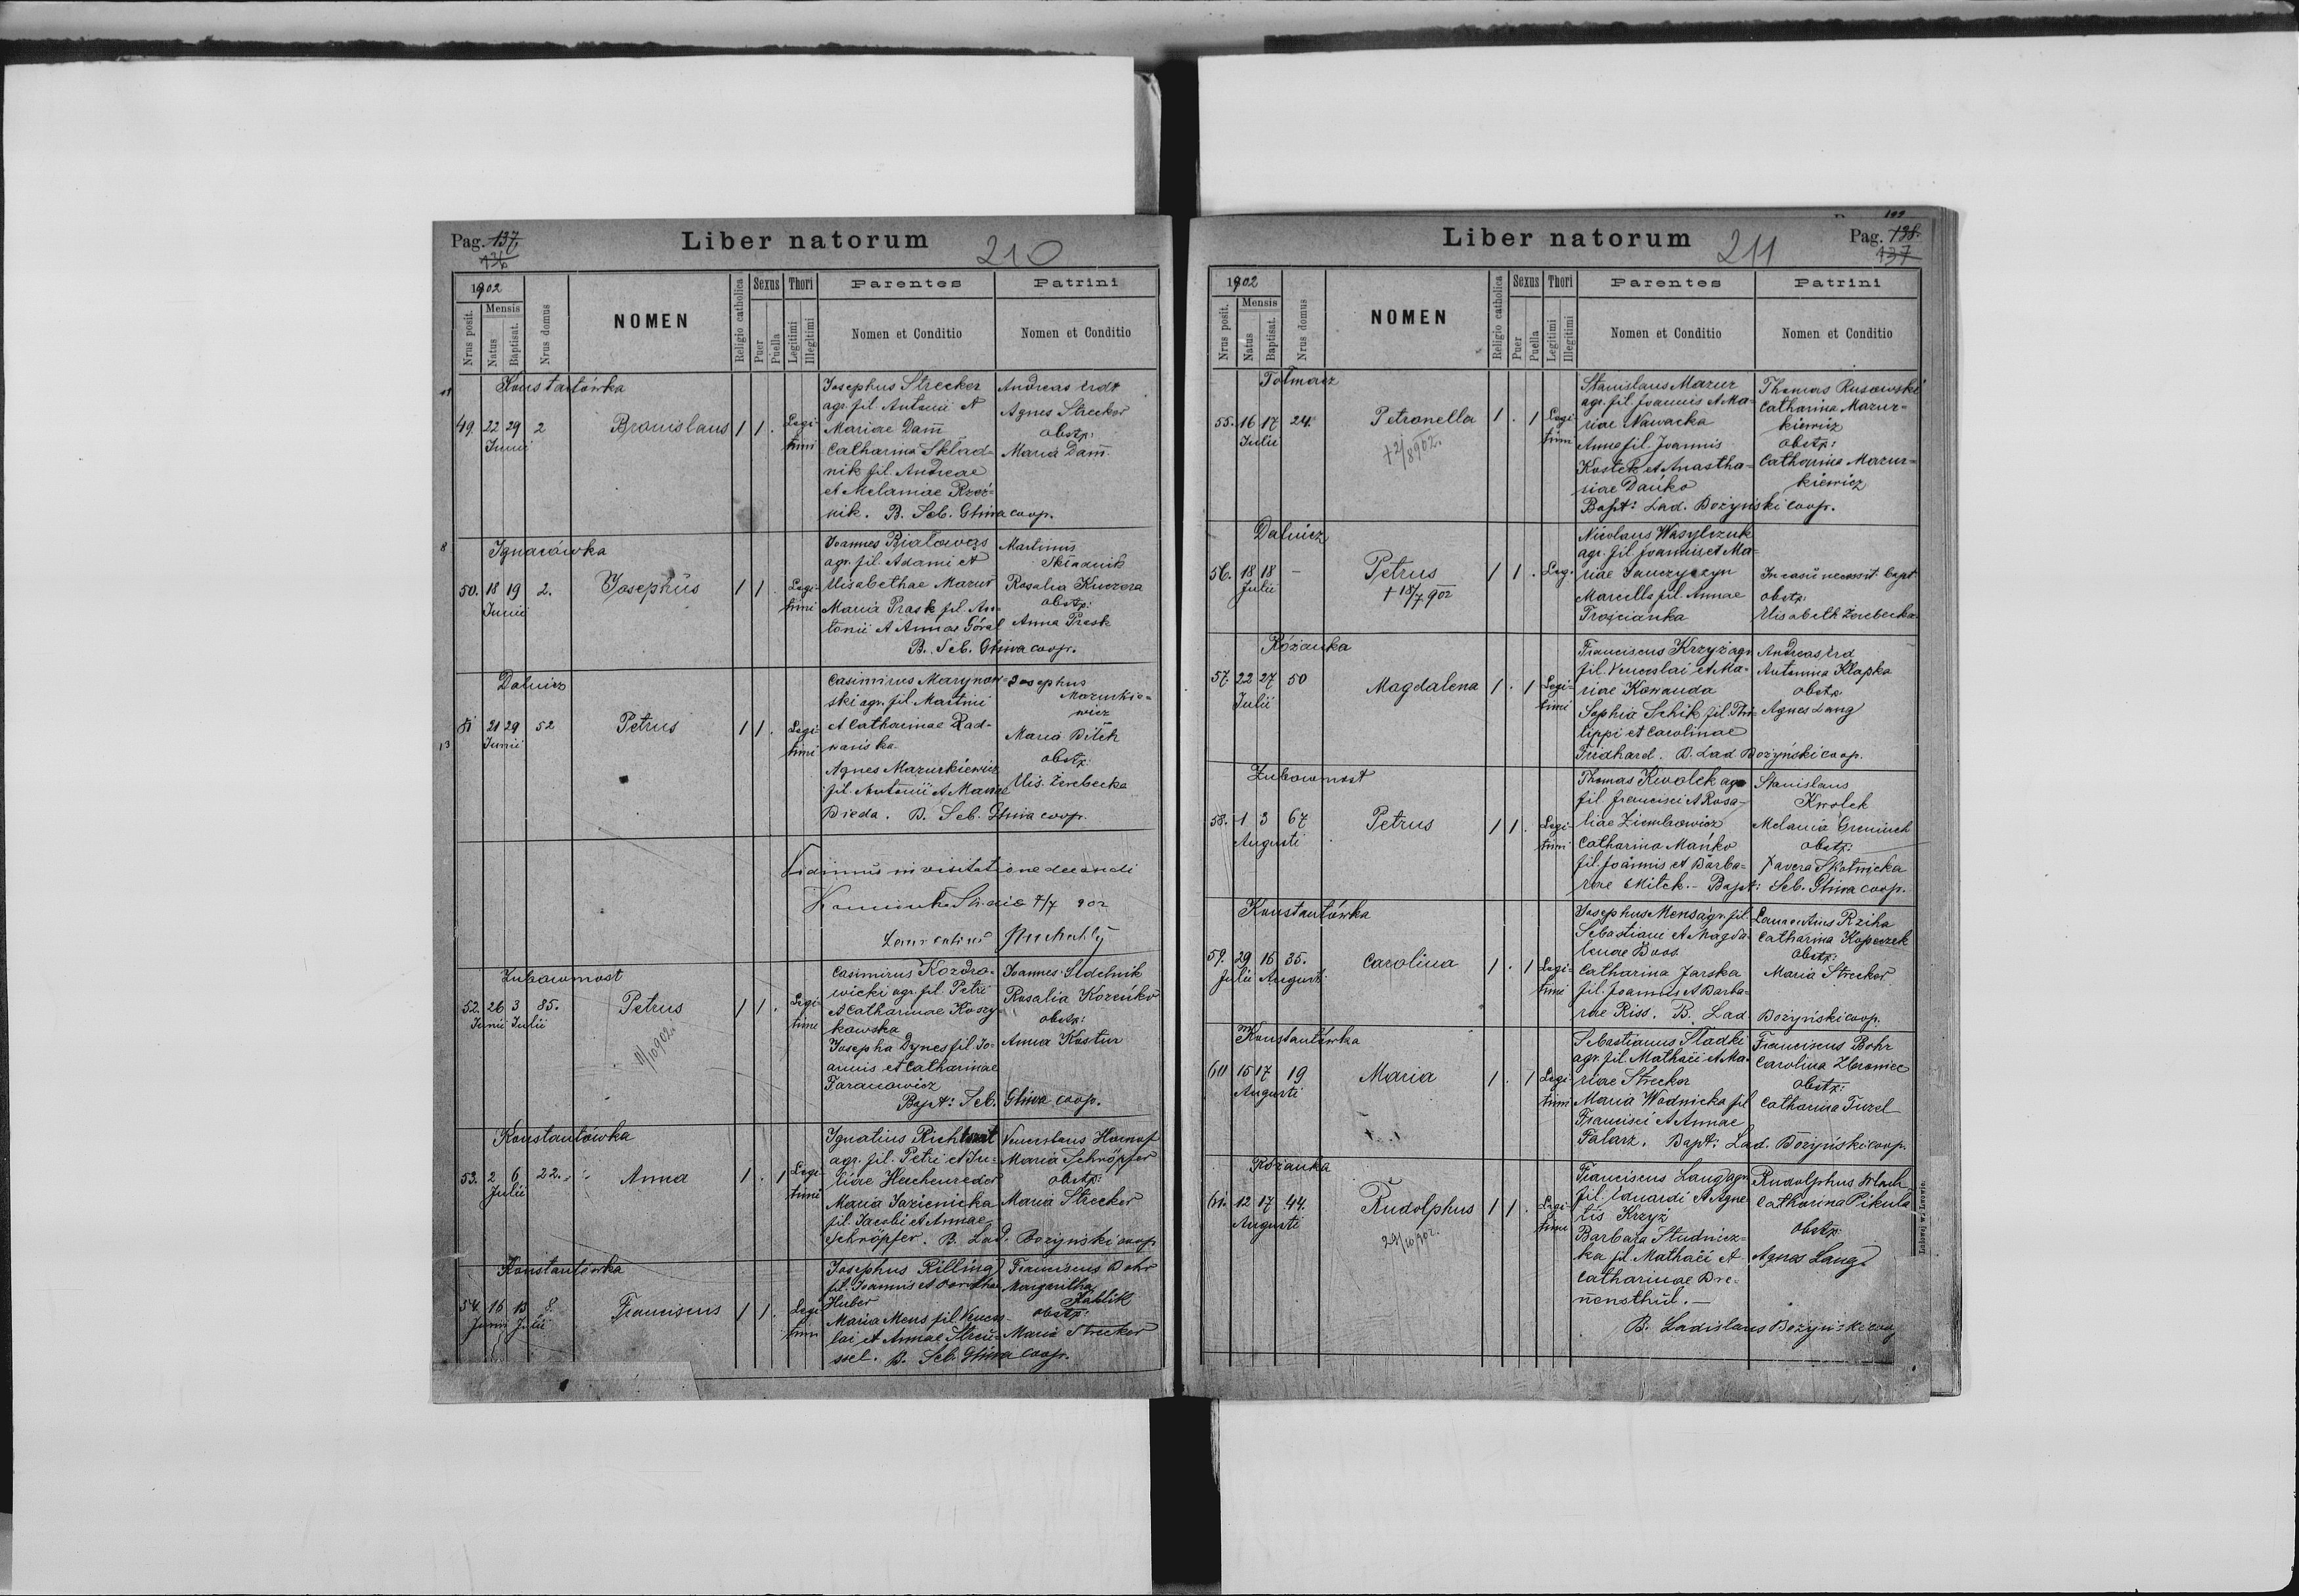 Pag. 137
136
Liber natorum
210
1902
Nrus posit.
Mensis
Natus
Baptisat.
Nrus domus
NOMEN
Religio catholica
Sexus
Puer
Puella
Thori
Legitimi
Illegitimi
Parentes
Nomen et Conditio
Patrini
Nomen et Conditio
Konstantówka
49. 22 29 2 Bronislaus 1 1 . Legi-
Junii
timi
Josephus Strecker
agr. fil. Antonii et
Mariae Dam̄
Catharina Sklad-
nik fil. Andreae
et Melaniae
nik. B. Seb. Gliwa coop.
Andreas
Agnes Strecker
obstp:
Maria Dam̄
Ignacówka
50. 18 19 2. Josephus 1 1 . Legi-
Junii
timi
Joannes
agr. fil. Adami et
Elisabethae Mazur
Maria Prask fil. An-
tonii et Annae Góral
B. Seb. Gliwa coop.
Martinus
Składnik
Rosalia Kuczera
obstp:
Anna Prask
Dalnicz
51 21 29 52 Petrus 1 1 . Legi-
Junii
timi
Casimirus Marynow-
ski agr. fil. Martini
et Catharinae Rad-
wańska
Agnes Mazurkiewicz
fil. Antonii et Mariae
Bieda. B. Seb. Gliwa coop.
Josephus
Mazurkie-
wicz
Maria
obstp:
Elis. Zerebecka
Vidimus in visitatione decanali
7/7 902
Laurentius
Zubowmost
52. 26 3 85. Petrus 1 1 . Legi-
Junii Julii
timi
11/10902.
Casimirus Kozdro-
wicki agr. fil. Petri
et Catharinae Koszy-
kowska
Josepha Dynes fil. Jo-
annis et Catharinae
Taranowicz
Bapt: Seb. Gliwa coop.
Joannes Sidelnik
Rosalia Kozeńko
obstp:
Anna Kostur
Konstantówka
53. 2 6 22. Anna 1 . 1 Legi-
Julii
timi
Ignatius
agr. fil. Petri et Ju-
liae
Maria Jazienicka
fil. Jacobi et Annae
Schröpfer. B. Lad. Bożyński coop.
Venceslaus
Maria Schröpfer
obstp:
Maria Strecker
Konstantówka
54. 16 13 8. Franciscus 1 1 . Legi-
Junii Julii
timi
Josephus Rilling
fil. Joannis et Dorothae
Huber
Maria Mens fil. Vences-
lai et Annae Streu-
ssel. B. Seb. Gliwa coop.
Franciscus Bohr
Margaritha
Jahlik
obstp:
Maria Strecker
Liber natorum
211
Pag. 138
137
1902
Nrus posit.
Mensis
Natus
Baptisat.
Nrus domus
NOMEN
Religio catholica
Sexus
Puer
Puella
Thori
Legitimi
Illegitimi
Parentes
Nomen et Conditio
Patrini
Nomen et Conditio
Tołmacz
55. 16 17 24. Petronella 1 . 1 Legi-
Julii
timi
+ 2/8902.
Stanislaus Mazur
agr. fil. Joannis et Ma-
riae Nawacka
Anna fil. Joannis
Kostek et Anastha-
siae Dańko
Bapt: Lad. Bożyński coop.
Thomas Rusowski
Catharina Mazur-
kiewicz
obstp:
Catharina Mazur-
kiewicz
Dalnicz
56. 18 18 – Petrus 1 1 . Leg.
Julii
+ 18/7902
Nicolaus Wasylczuk
agr. fil. Joannis et Ma-
riae
Marcella fil. Annae
Trojcianka
In casu necessit. bapt
obstp:
Elisabeth Zerebecka
Różanka
57. 22 27 50 Magdalena 1 . 1 Legi-
Julii
timi
Franciscus Krzyż agr
fil. Venceslai et Ma-
riae Kowanda
Sophia Schik fil. Phi-
lippi et Carolinae
Fridhard. B. Lad Bożyński coop.
Andreas
Antonina Klapka
obstp:
Agnes Lang
Zubowmost
58. 1 3 67 Petrus 1 1 . Legi-
Augusti
timi
Thomas Kwolek agr
fil Francisci et Rosa-
liae Ziembowicz
Catharina Mańko
fil. Joannis et Barba-
rae Mitek. – Bapt: Seb. Gliwa coop.
Stanislaus
Kwolek
Melania
obstp:
Xavera Skotnicka
Konstantówka
59. 29 16 35. Carolina 1 . 1 Legi-
Julii Augusti
timi
Josephus Mens agr. fil.
Sebastiani et Magda-
lenae Boos
Catharina Jarska
fil. Joannis et Barba-
rae Riss. B. Lad Bożyński coop.
Laurentius Rziha
Catharina Kopeczek
obstp:
Maria Strecker
Konstantówka
60 15 17 19 Maria 1 . 1 Legi-
Augusti
timi
Sebastianus Sladki
agr. fil. Mathaei et Ma-
riae Strecker
Maria Wodnicka fil
Francisci et Annae
Talarz. Bapt: Lad. Bożyński coop.
Franciscus Bohr
Carolina Zbroniec
obstp:
Catharina Tuzel
Różanka
61. 12 17 44. Rudolphus 1 1 . Legi-
Augusti
timi
29/10/902.
Franciscus Lang agr.
fil. Eduardi et Agne-
tis Krzyż
Barbara Studnicz-
ka fil. Mathaei et
Catharinae Bre-
nensthul. –
B. Ladislaus Bożyński coop
Rudolphus
Catharina Pikula
obstp:
Agnes Lang.